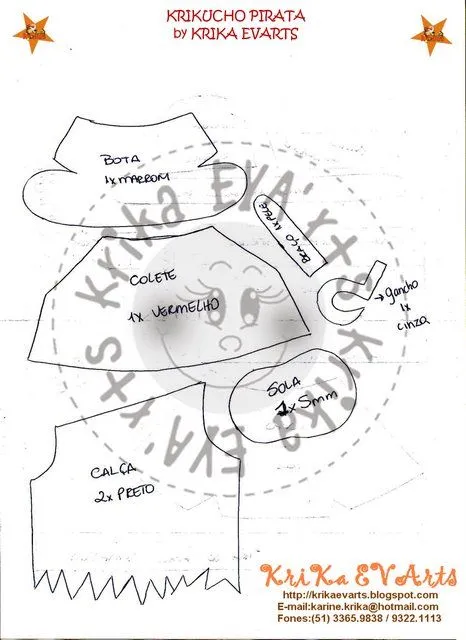 KRIKUCHO PIRATA
by KRIKA EVARTS
BOTA
1x MARROM
BRAÇO 1x PELE
COLETE
1x VERMELHO
gancho
1x
cinza
SOLA
1x 5mm
CALÇA
2x PRETO
Krika EVA'rxs Krika EVA'rxs
KriKa EVArts
http://krikaevarts.blogspot.com
E-mail:karine.krika@hotmail.com
Fones:(51) 3365.9838 / 9322.1113